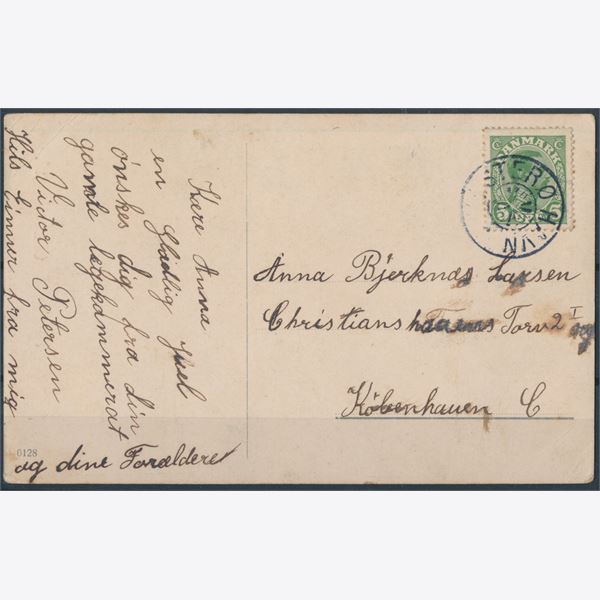 Kære Anna
en Glædlig Juel
ønskes dig fra din
gamle legekammerat
Victor Petersen
Hils Einner fra mig
og dine Forældere
0128
DANMARK
5 5
STERØ
JUN
Anna Bjerknæs Larsen
Christianshavns Torv 2 I
København C